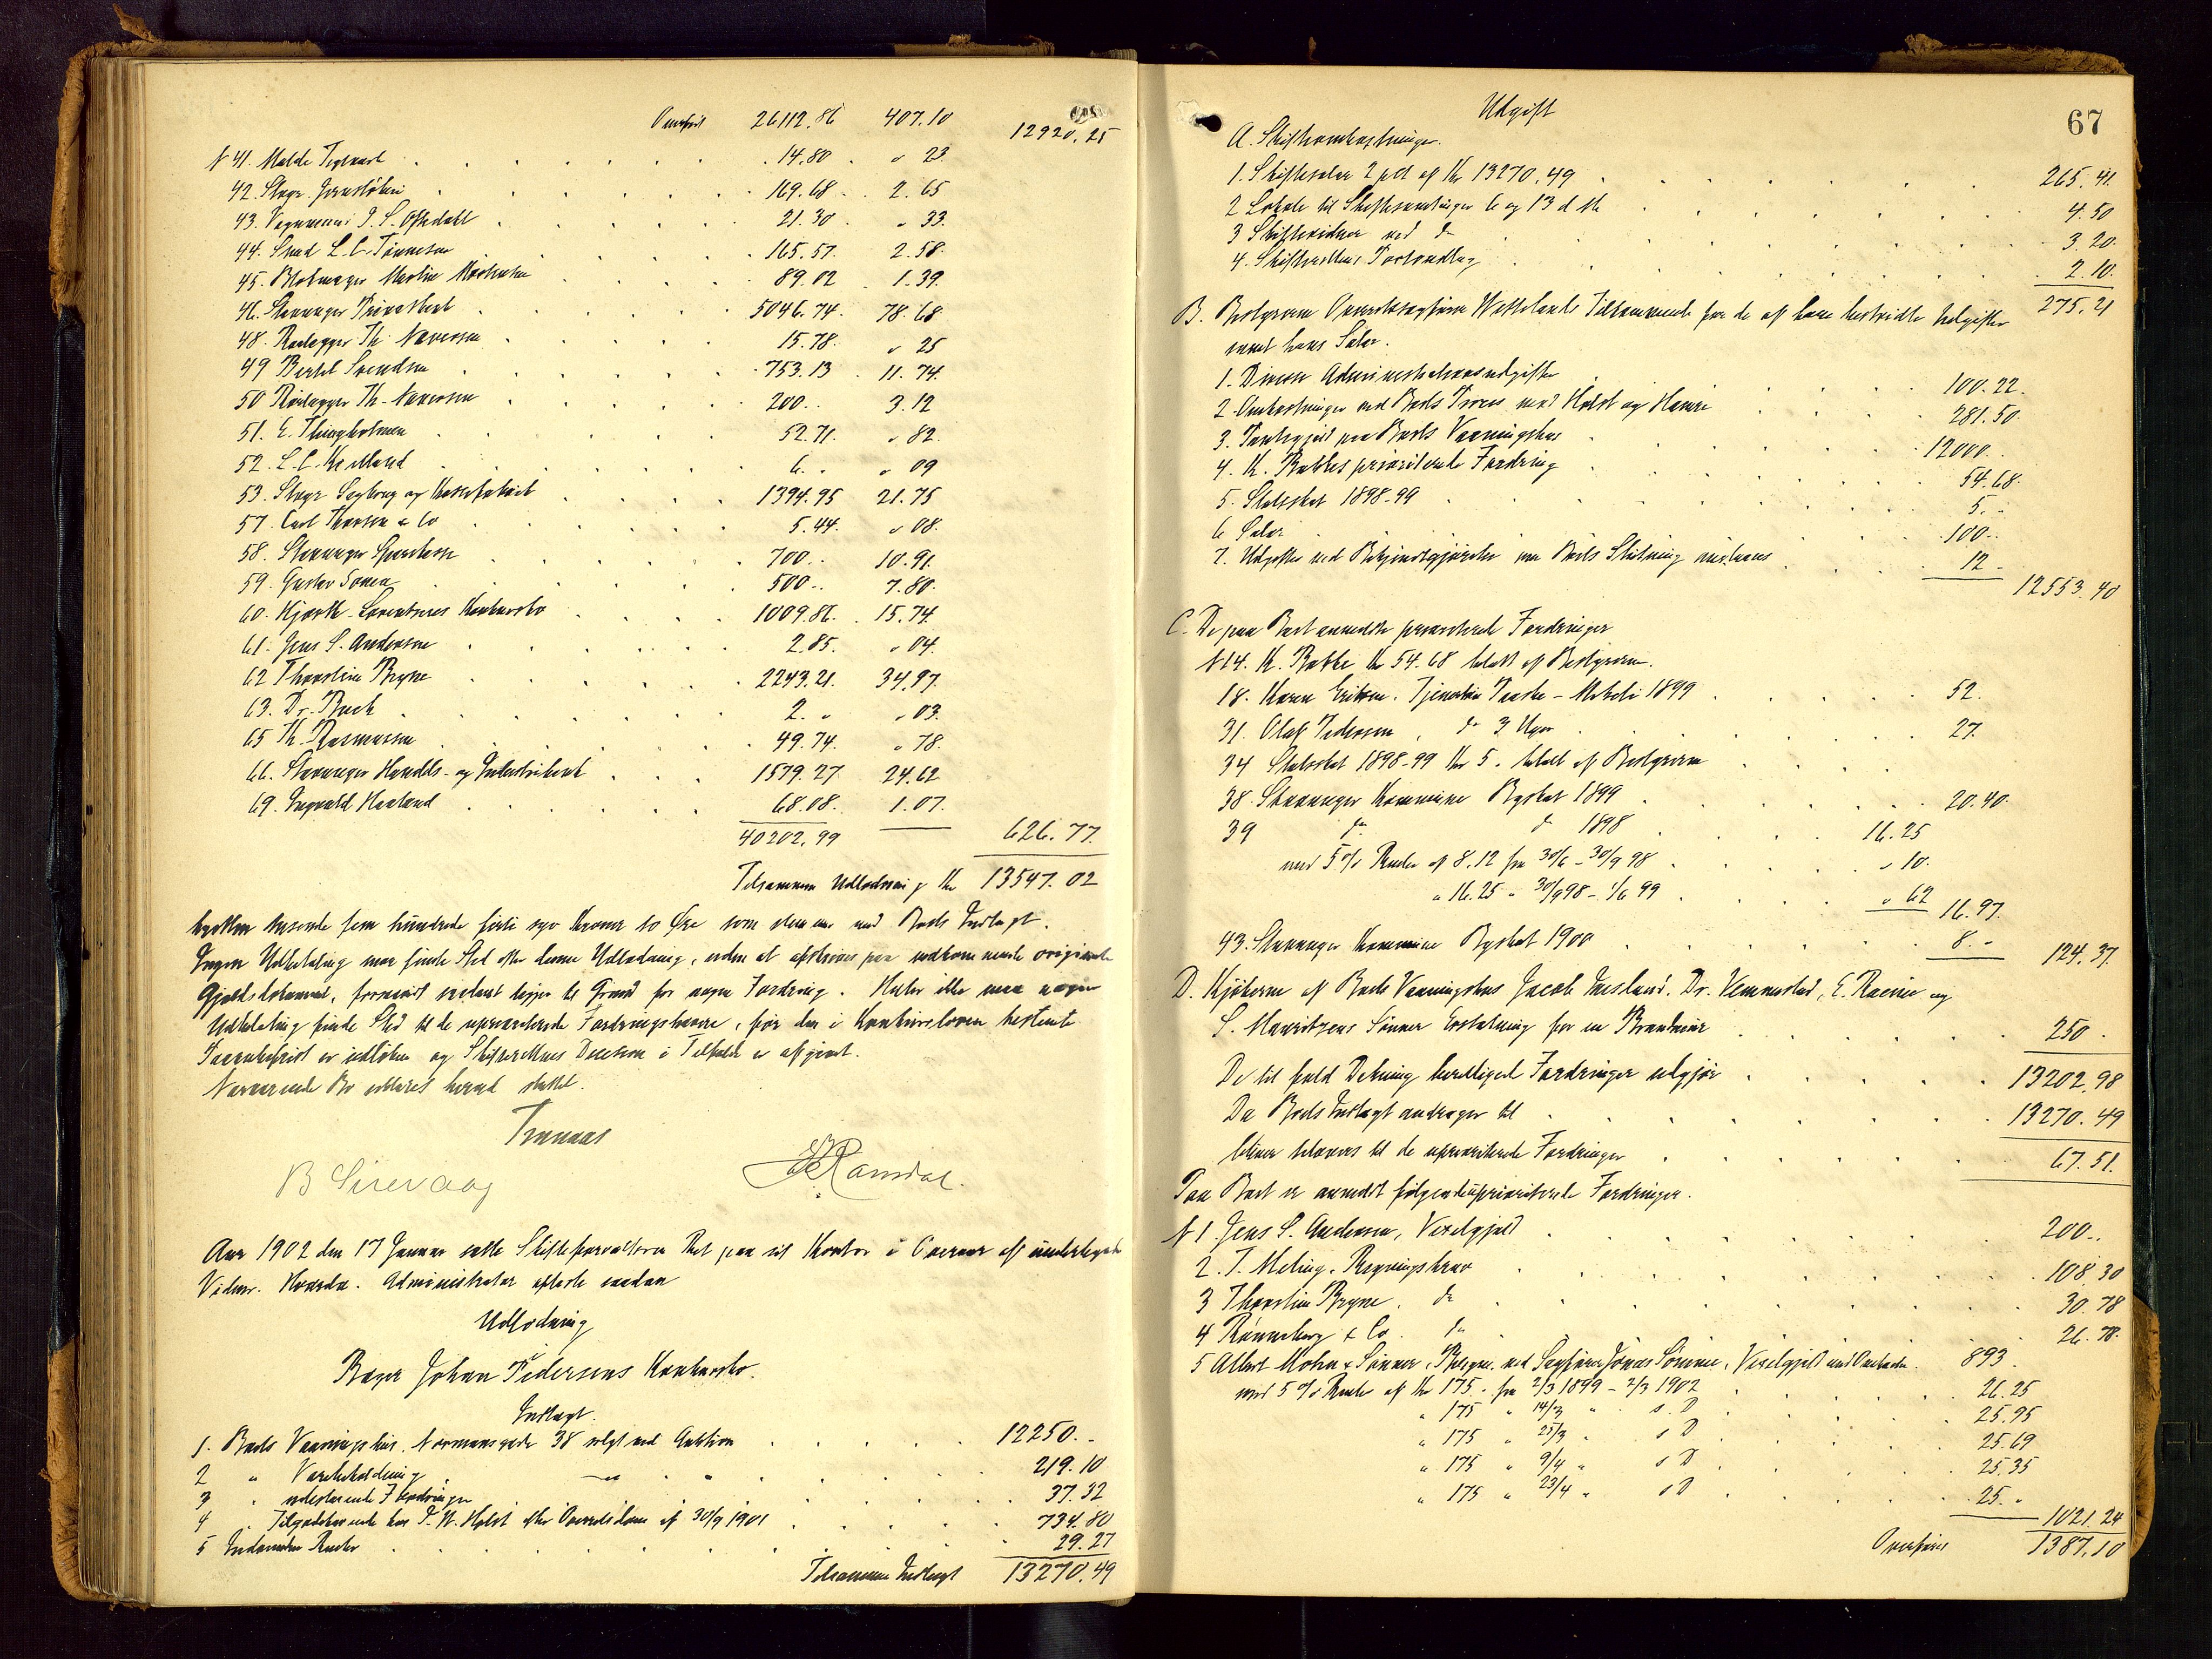 Overført 26112.86 407.10 12920.25
N 41. Malde Teglverk 14.80 " 23
42. Stvgr. Jernstøberi 169.68 2.65
43. 21.30 " 33.
44. Smed L. C. Tønnesen 165.57 2.58.
45. Martin 89.02 1.39.
46. Stavanger Privatbank 5046.74. 78.68
48. Rørlegger Th. Naversen 15.78 " 25
49 Bertel Svendsen 753.13 11.74.
50 Rørlegger Th. Naversen 200.. 3.12
51. E. Thingholmen 52.71. " 82.
52. L. C. Kielland 6. " " 09
53. Stvgr Sagbrug og Kassefabrik 1394.95 21.75
57. Carl Thorsen & Co 5.44. " 08.
58. Stavanger Sparekasse 700.. 10.91.
59. Gustav 500.. 7.80.
60. Hjorth Lorentzens Konkursbo 1009.86. 15.74
61. Jens S. Andersen 2.85. " 04.
62 Thorstein Bryne 2243.21. 34.97.
63. Dr. Buch 2. " " 03.
65 Th. Rasmussen 49.74. " 78.
66. Stavanger Handels- og Industribank 1579.27 24.62
69. Ingvald Haaland 68.08. 1.07.
40202.99 626.77.
Tilsammen Udlodning Kr 13547.02
tretten tusende fem hundrede førti syv Kroner to Øre som stemmer med Boets Indtægt.
Ingen Udbetaling maa finde Sted efter denne Udlodning, uden at afskrives paa vedkommende originale
Gjældsdokument, forsaavidt saadant ligger til Grund for nogen Fordring. Heller ikke maa nogen
Udbetaling finde Sted til de uprioriterede Fordringshavere, før den i Konkursloven bestemte
Paaankefrist er udløben og Skifterettens Decision i Tilfælde er afsjunt.
Nærværende Bo erklæres herved sluttet.
B Sirevaag Ramdal.
Aar 1902 den 17 Januar satte Skifteforvalteren Ret paa sit Kontor i Overvær af undertegnede
Vidner. Hvorda. Administrator aflagte saadan
Udlodning
i
Bager Johan Pedersens Konkursbo.
Indtægt.
1. Boets Vaaningshus Normansgade 38 solgt ved Auktion 12250. -
2 " Varebeholdning 219.10
3 " udestaaende Fordringer 37.32
4 " Tilgodehavende hos P. W. Holst efter Overretsdom af 30/9 1901 734.80
5 Indvundne Renter 29.27
Tilsammen Indtægt 13270.49
67
Udgift
A. Skifteomkostninger.
1. Skiftesalær 2 pct af Kr 13270.49 265.41.
2 Lokale til Skiftesamlinger 6 og 13 d Mts 4.50
3 Skiftevidner ved do 3.20.
4. Skifterettens Forhandling 2.10.
275.21
B. Bestyreren Overretssagfører Wettelands Tilkommende for de af ham bestridte Udgifter
samt hans Salær.
1. Diverse Administrationsudgifter 100.22.
2. Omkostninger ved Boets Proces mod Holst og Hamre 281.50.
3. Pantegjæld paa Boets Vaaningshus 12000..
4. K. Bakkes prioriterede Fordring 54.68.
5. Statsskat 1898-99 5. -
6 Salær 100..
7. Udgifter ved Bekjendtgjørelse om Boets Slutning m. 12 -
12553.40
C. De paa Boet anmeldte prioriterede Fordringer
N 14. K. Bakke Kr 54.68 betalt af Bestyreren.
18. Karen Eriksen. Tjenerløn Paaske-Mikeli 1899 52.
31. Olaf Pedersen, do 3 Uger 27.
34 Statsskat 1898-99 Kr 5. betalt af Bestyreren
38. Stavanger Kommune Byskat 1899 20.40.
39 do do 1898 16.25
med 5 o/o Renter af 8.12 fra 30/6-30/9 98 " 10.
" 16.25 " 30/9 98 - 1/6 99 " 62 16.97.
43. Stavanger Kommune Byskat 1900 8. - 124.37.
D. Kjøberne af Boets Vaaningshus Jacob Dr. Vennerstad, E. Racine og
S. Mauritzens Sønner Erstatning for en Brandmur 250 .
De til fuld Dekning berettigede Fordringer udgjør 13202.98
Da Boets Indtægt andrager til 13270.49
bliver tilovers til de uprioriterede Fordringer 67.51.
Paa Boet er anmeldt følgende uprioriterede Fordringer.
N 1. Jens S. Andersen, Vexelgjæld 200..
2. T. Meling. Regningskrav 108.30
3 Thorstein Bryne. do 30.78
4 Rønneberg & Co. do 26.78.
5 Albert Mohn & Sønner, Bergen. ved Sagfører Jonas Sømme, Vexelgjæld med Omkostn. 893
med 5 o/o Renter af Kr 175.- fra 2/3 1899 - 2/3 1902 26.25
" 175 " 14/3 " s. D 25.95
" 175 " 25/3 " s D 25.69
" 175 " 9/4 " s D 25.35
" 175 " 23/4 " s D 25. "
1021.24
Overføres 1387.10